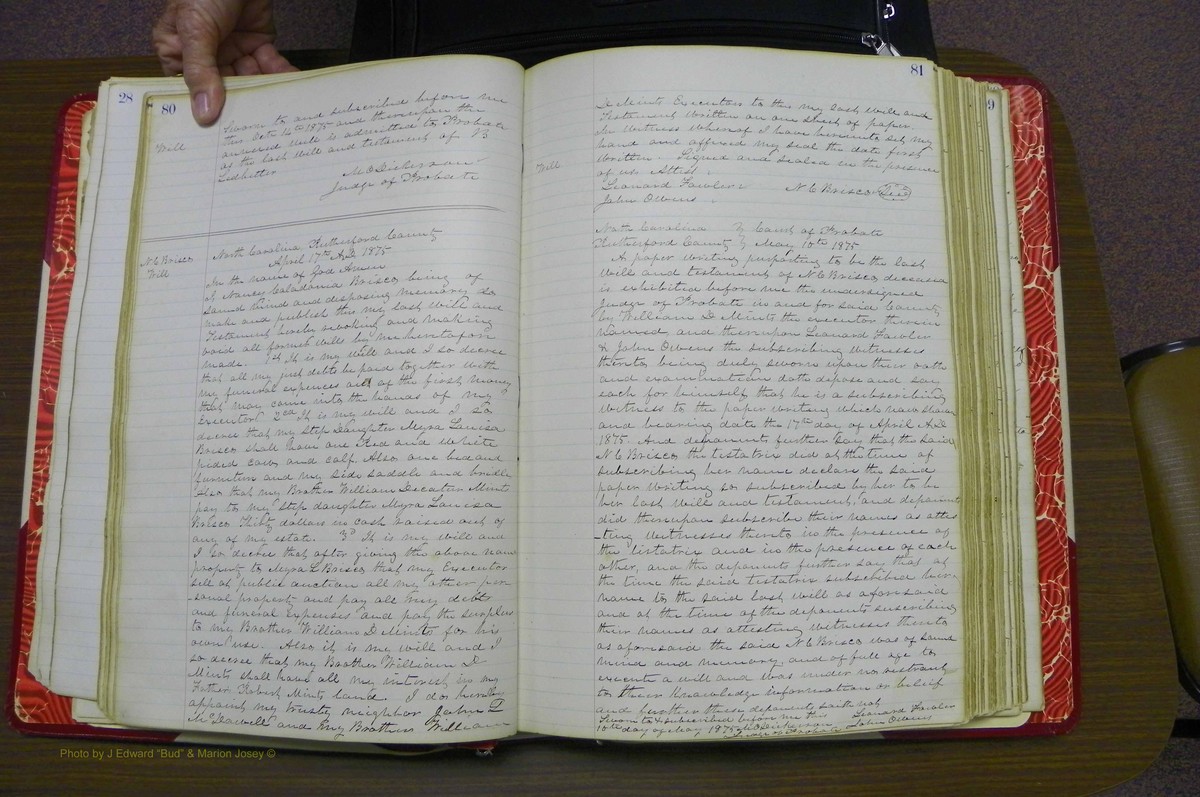 28
80
Sworn to and subscribed before me
this Oct 14th 1875 and thereupon the
annexed will is admitted to Probate
Will
as the last will and testament of B
Ledbetter
M O Dickerson
Judge of Probate
N C Brisco
Will
North Carolina Rutherford County
April 17th A.D. 1875
In the name of God Amen
I Nancy Caladonia Brisco being of
sound mind and disposing memory so
make and publish this my last will and
Testament hereby revoking and making
void all former wills by me heretofore
made. 1st It is my will and I so decree
that all my just debts be paid together with
my funeral expences out of the first money
that may come into the hands of my
Executor 2nd It is my will and I so
decree that my Step Daughter Myra Louisa
Brisco shall have one Red and white
pided cow and calf. Also one bed and
furniture and my side saddle and bridle
Also that my Brother William Decatur Mints
pay to my step daughter Myra Louisa
Brisco thirty dollars in cash raised out of
any of my estate. 3d It is my will and
I so decree that after giving the above named
property to Myra L Brisco that my Executor
sell at public auction all my other per
-sonal property and pay all my debts
and funeral expenses and pay the surplus
to my Brother William D Mints for his
own use. Also it is my will and I
so decree that my Brother William D
Mints shall have all my interest in my
Father Robert Mints land. I do hereby
appoint my trusty neighbor John L
McDowell and my Brother William
81
9
D Mints Executors to this my last will and
Testament written on one sheet of paper.
In witness whereof I have hereunto set my
hand and affixed my seal the date first
Will
written. Signed and sealed in the presence
of us Attest
Leonard Fowler N C Brisco Seal
John Owens
North Carolina } Court of Probate
Rutherford County } May 10th 1875
A paper writing purporting to be the last
will and testament of N C Brisco deceased
is exhibited before me the undersigned
Judge of Probate in and for said County
by William D Mints the executor therein
named and thereupon Leonard Fowler
& John Owens the subscribing witnesses
thereto being duly sworn upon their oath
and examination doth depose and say
each for himself that he is a subscribing
witness to the paper writing which now shown
and bearing date the 17th day of April A.D
1875. And deponents further say that the said
N C Brisco the testatrix did at the time of
subscribing her name declare the said
paper writing so subscribed by her to be
her last will and testament, and deponents
did thereupon subscribe their names as attes
-ting witnesses thereto in the presence of
the testatrix and in the presence of each
other, and the deponents further say that at
the time the said testatrix subscribed her
name to the said last will as aforesaid
and at the time of the deponents suscribing
their names as attesting witnesses thereto
as aforesaid the said N C Brisco was of sound
mind and memory, and of full age to
execute a will and was under no restraint
to their knowledge information or belief
and further these deponents saith not
Sworn to & subscribed before me this Leonard Fowler
10th day of May 1875 M O Dickerson John Owens
Judge of Probate
Photo by J Edward "Bud" & Marion Josey ©